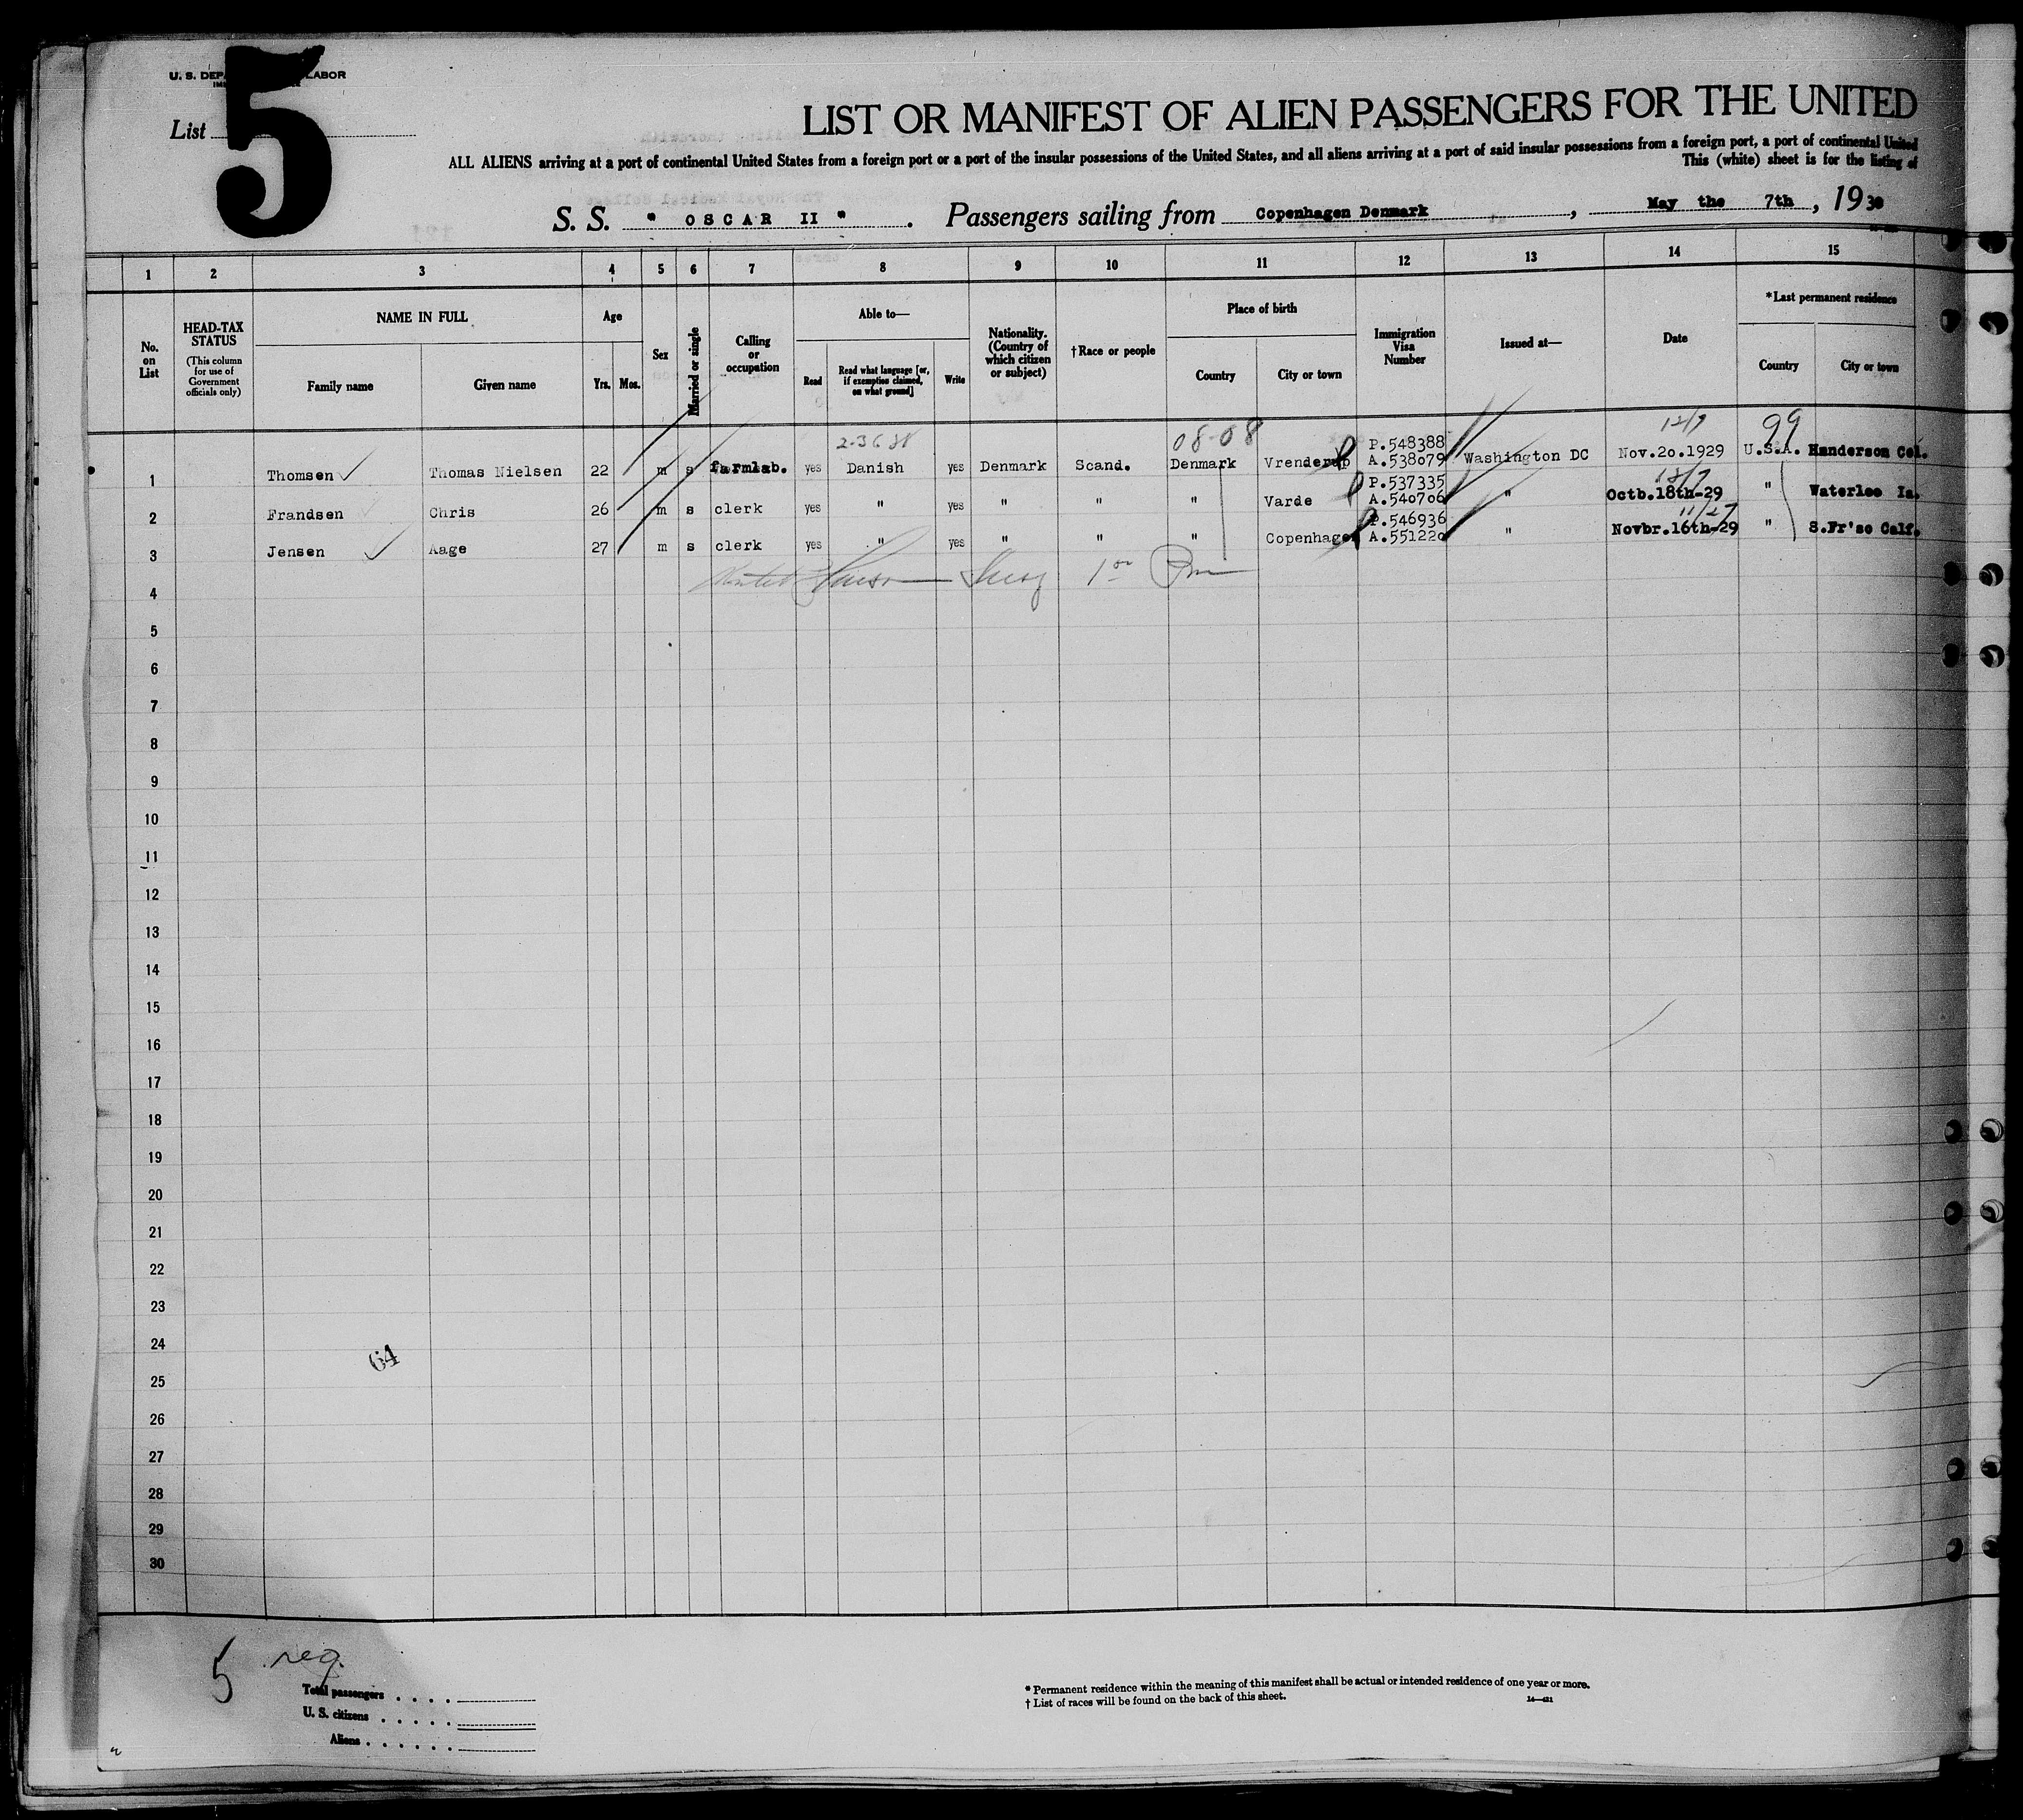 U. S. DEPA LABOR
List
5
LIST OR MANIFEST OF ALIEN PASSENGERS FOR THE UNITED
ALL ALIENS arriving at a port of continental United States from a foreign port or a port of the insular possessions of the United States, and all aliens arriving at a port of said insular possessions from a foreign port, a port of continental United
This (white) sheet is for the listing of
S. S. " OSCAR II " . Passengers sailing from Copenhagen Denmark , May the 7th , 1930
1 2 3 4 5 6 7 8 9 10 11 12 13 14 15
No. on List
HEAD-TAX STATUS
(This column for use of Government officials only)
NAME IN FULL
Family name Given name
Age
Yrs. Mos.
Sex
Married or single
Calling or occupation
Able to—
Read
Read what language [or, if exemption claimed, on what ground]
Write
Nationality. (Country of which citizen or subject)
†Race or people
Place of birth
Country City or town
Immigration Visa Number
Issued at—
Date
*Last permanent residence
Country City or town
08-08 12/7 99
1 Thomsen Thomas Nielsen 22 m s farmlab. yes Danish yes Denmark Scand. Denmark Vrenderup P.548388 A.538079 Washington DC Nov.20.1929 U.S.A. Handerson Col.
12/7
2 Frandsen Chris 26 m s clerk yes " yes " " " Varde P.537335 A.540706 " Octb.18th-29 " Waterloo Ia.
11/27
3 Jensen Aage 27 m s clerk yes " yes " " " Copenhagen P.546936 A.551220 " Novbr.16th-29 " S.Fr'sc Calf.
4
5
6
7
8
9
10
11
12
13
14
15
16
17
18
19
20
21
22
23
24
64
25
26
27
28
29
30
5 req.
Total passengers
U. S. citizens
Aliens
* Permanent residence within the meaning of this manifest shall be actual or intended residence of one year or more.
† List of races will be found on the back of this sheet.
14—421